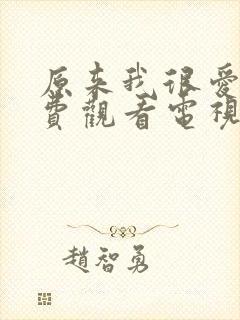 原来我很爱
費觀看電視
趙智勇